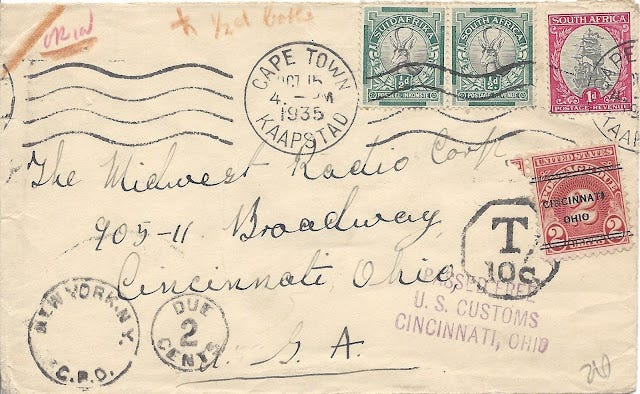 ½d
CAPE TOWN
OCT 15
4. - PM
1935
KAAPSTAD
SUIDAFRIKA
½d
POSSEEL INKOMSTE
SOUTH AFRICA
½d
POSTAGE REVENUE
SOUTH AFRICA
1d
POSTAGE-REVENUE
CAPE
KAAPSTAD
The Midwest Radio Corp
905-11 Broadway
Cincinnati, Ohio
U. S. A.
UNITED STATES
CINCINNATI
OHIO
2 2
T
10c
PASSED FREE
U. S. CUSTOMS
CINCINNATI, OHIO
NEW YORK. N.Y.
DUE
2
CENTS